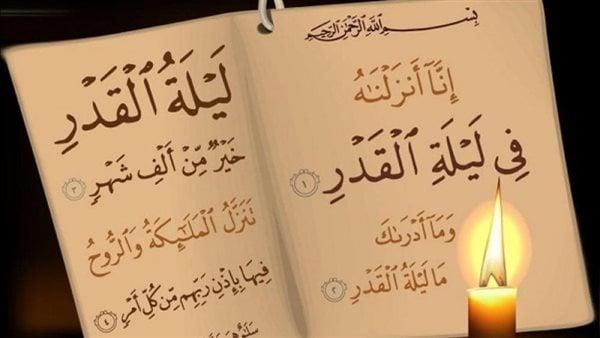 بِسْمِ اللَّهِ الرَّحْمَٰنِ الرَّحِيمِ
إِنَّآ أَنزَلْنَـٰهُ
فِي لَيْلَةِ ٱلْقَدْرِ ١
وَمَآ أَدْرَىٰكَ
مَا لَيْلَةُ ٱلْقَدْرِ ٢
لَيْلَةُ ٱلْقَدْرِ
خَيْرٌ مِّنْ أَلْفِ شَهْرٍ ٣
تَنَزَّلُ ٱلْمَلَـٰٓئِكَةُ وَٱلرُّوحُ
فِيهَا بِإِذْنِ رَبِّهِم مِّن كُلِّ أَمْرٍ ٤